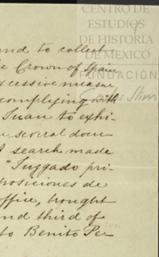 CENTRO DE
ESTUDIOS
DE HISTORIA
DE MÉXICO
FUNDACIÓN
and to collect
Crown of
excessive
complying with
Juan to exhi-
several docu
search made
"Juzgado pri-
posiciones de
office, brought
and third of
to Benito Pe